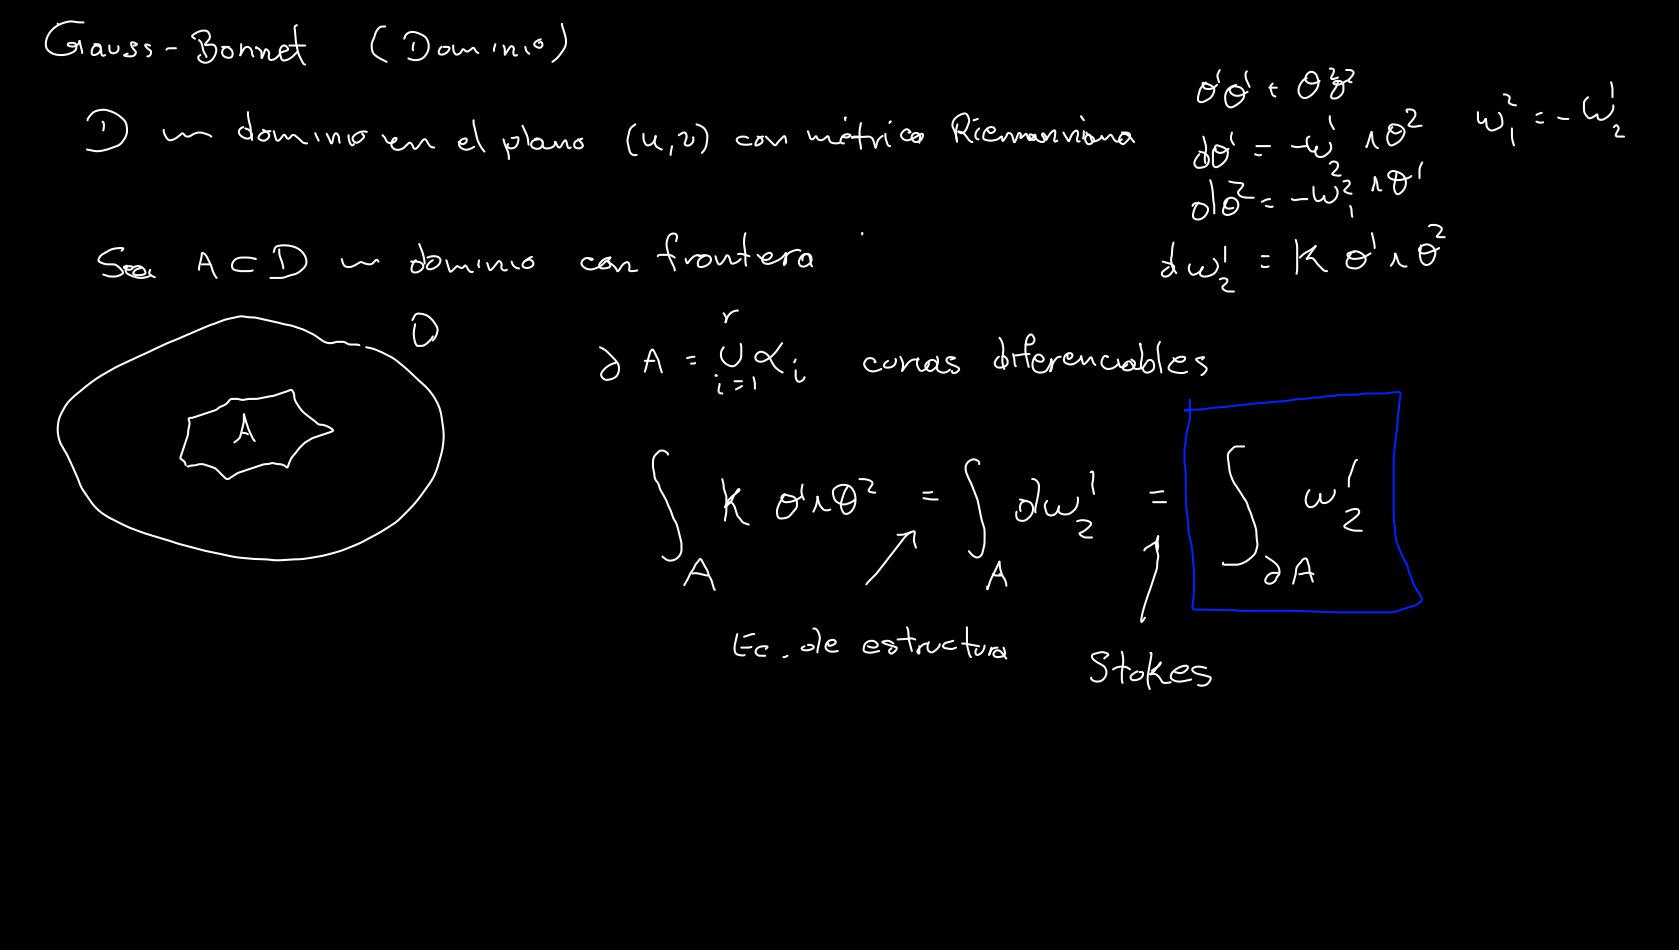 Gauss-Bonnet (Dominio)
θ¹θ¹ + θ²θ²
D un dominio en el plano (u,v) con métrica Riemanniana
dθ¹ = -ω¹₂ ∧ θ²   ω²₁ = -ω¹₂
dθ² = -ω²₁ ∧ θ¹
Sea A ⊂ D un dominio con frontera
dω¹₂ = K θ¹ ∧ θ²
D
∂A = ⋃ᵢ₌₁ʳ αᵢ curvas diferenciables
A
∫_A K θ¹∧θ² = ∫_A dω¹₂ = ∫_∂A ω¹₂
Ec. de estructura
Stokes